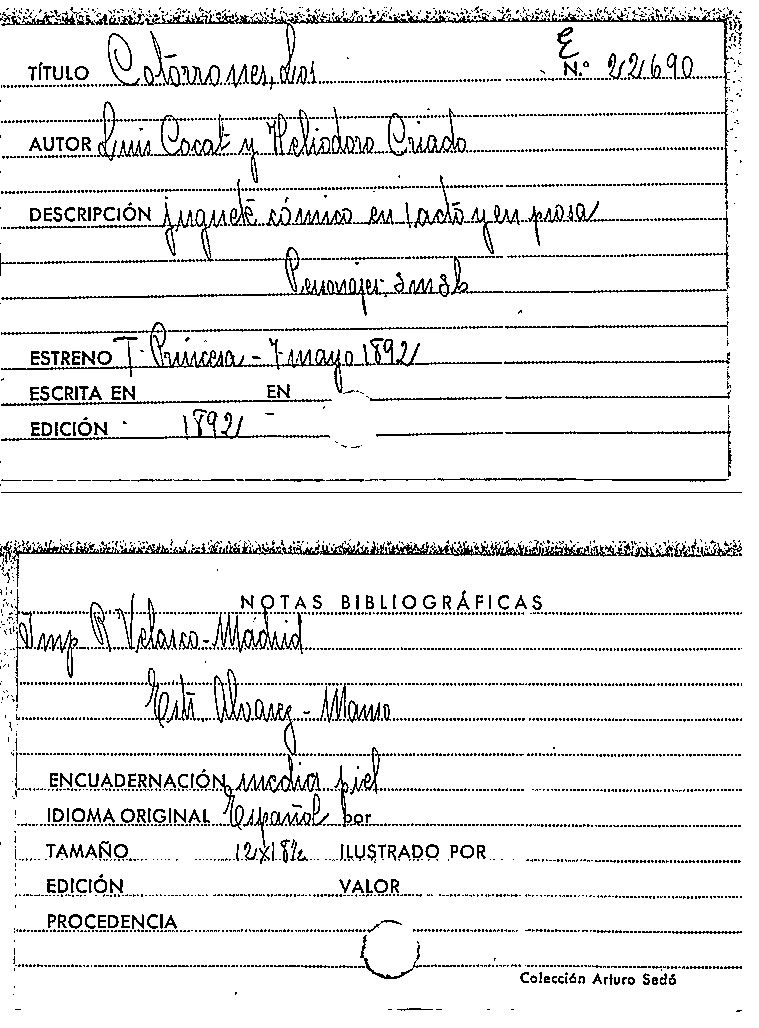 E
TÍTULO Cotorrones, Los N.º 22690
AUTOR Luis Cocat y Heliodoro Criado
DESCRIPCIÓN juguete cómico en 1 acto y en prosa
Personajes: 3m 3h
ESTRENO T. Princesa - 7 mayo 1892
ESCRITA EN EN
EDICIÓN 1892
NOTAS BIBLIOGRÁFICAS
Imp R Velasco - Madrid
Estr. Alvarez - Manso
ENCUADERNACIÓN media piel
IDIOMA ORIGINAL Español por
TAMAÑO 12x18½ ILUSTRADO POR
EDICIÓN VALOR
PROCEDENCIA
Colección Arturo Sedó